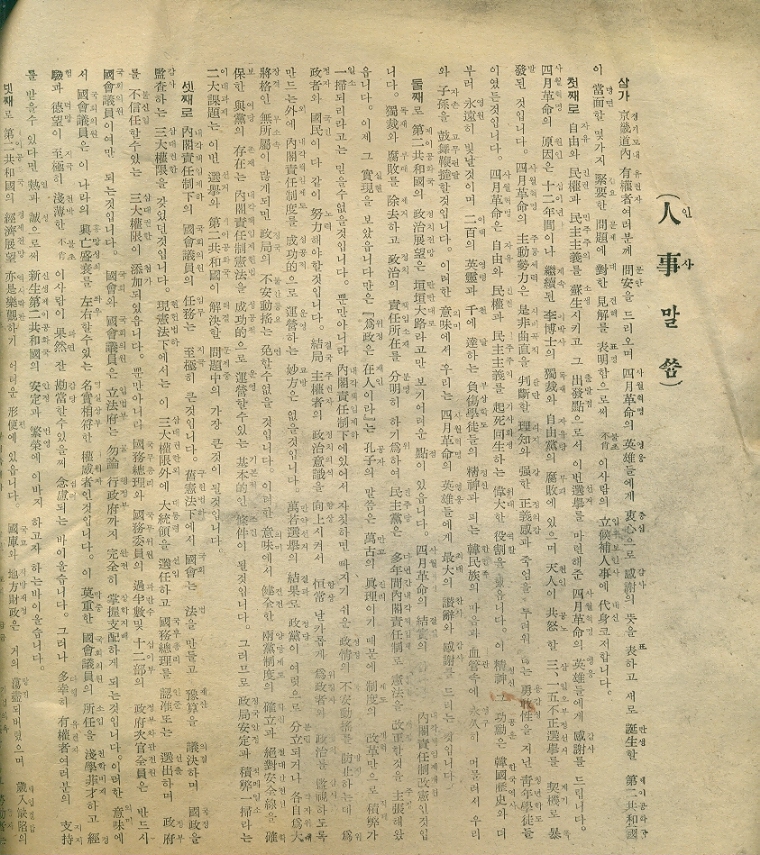 (人事말씀)
삼가 京畿道內 有權者여러분께 問安을 드리오며 四月革命의 英雄들에게 衷心으로 感謝의 뜻을 表하고 새로 誕生할 第二共和國
이 當面한 몇가지 緊要한 問題에 對한 見解를 表明함으로써 不肖 이사람의 立候補人事에 代身코저합니다.
첫째로 自由와 民權과 民主主義를 蘇生시키고 그 出發點으로서 이번選擧를 마련해준 四月革命의 英雄들에게 感謝를 드립니다.
四月革命의 原因은 十二年間이나 繼續된 李博士의 獨裁와 自由黨의 腐敗에 있으며 天人이 共怒할 三、一五不正選擧를 契機로 暴
發된 것입니다. 四月革命의 主動勢力은 是非曲直을 判斷한 理知와 强한 正義感과 죽엄을 두려워 는 勇敢性을 지닌 靑年學徒들
이였든것입니다. 四月革命은 自由와 民權과 民主主義를 起死回生하는 偉大한 役割을 했읍니다. 이 精神 이 功勳은 韓國歷史와 더
부러 永遠히 빛날것이며 二百의 英靈과 千에 達하는 負傷學徒들의 精神과 피는 韓民族의 마음과 血管속에 永久히 머물러서 우리
와 子孫을 鼓舞鞭撻할것입니다. 이러한 意味에서 우리는 四月革命의 英雄들에게 最大의 讚辭와 感謝를 드리는 것입니다.
둘째로 第二共和國의 政治展望은 坦坦大路라고만 보기어려운 點이 있읍니다. 四月革命의 結實의 內閣責任制改憲인것입
니다. 獨裁와 腐敗를 除去하고 政治의 責任所在를 分明히 하기爲하여 民主黨은 多年間內閣責任制로 憲法을 改正할것을 主張해왔
읍니다. 이제 그 實現을 보았읍니다만은 『爲政은 在人이라』는 孔子의 말씀은 萬古의 眞理이기 때문에 制度의 改革만으로 積弊가
一掃되리라고는 믿을수없을것입니다. 뿐만아니라 內閣責任制下에있어서 자칫하면 빠지기 쉬운 政情의 不安動搖를 防止하는데 爲
政者와 國民이 다 같이 努力해야할것입니다. 結局 主權者의 政治意識을 向上시켜서 恒常 날카롭게 爲政者와 政治를 監視하도록
만드는外에 內閣責任制度를 成功的으로 運營하는 妙方은 없을것입니다. 萬若選擧의 結果로 政黨이 여럿으로 分立되거나 各自爲大
將格인 無所屬이 많게되면 政局의 不安動搖는 免할수없을것입니다. 이러한 意味에서 健全한 兩黨制度의 確立과 絕對安全線을 確
保한 與黨의 存在는 內閣責任制憲法을 成功的으로 運營할수있는 基本的인 條件이 될것입니다. 그러므로 政局安定과 積弊一掃라는
二大課題는 이번 選擧와 第二共和國이 解決할 問題中의 가장 큰것이 될것입니다.
셋째로 內閣責任制下의 國會議員의 任務는 至極히 큰것입니다. 舊憲法下에서 國會는 法을 만들고 豫算을 議決하며 國政을
監査하는 三大權限을 갖었던것입니다. 現憲法下에서는 이 三大權限外에 大統領을 選任하고 國務總理를 認准또는 選出하며 政府
를 不信任할수있는 三大權限이 添加되었읍니다. 뿐만아니라 國務總理와 國務委員의 過半數및 十二部의 政府次官全員은 반드시
國會議員이여만 되는것입니다. 國會와 國會議員은 立法府는 勿論 行政府까지 完全히 掌握支配하게 되는것입니다.이러한 意味에
서 國會議員은 이 나라의 興亡盛衰를 左右할수있는 名實相符한 權威者인것입니다. 이 莫重한 國會議員의 所任을 淺學菲才하고 經
驗과 德望이 至極히 淺薄한 不肖 이사람이 果然 잘 勘當할수있을찌 念慮되는 바이올습니다. 그러나 多幸히 有權者여러분의 支持
를 받을수 있다면 熱과 誠으로써 新生第二共和國의 安定과 繁榮에 이바지 하고자 하는바이올습니다.
넷째로 第二共和國의 經濟展望 亦是樂觀하기 어려운 形便에 있읍니다. 國庫와 地方財政은 거의 蕩盡되버렸으며 歲入缺陷의